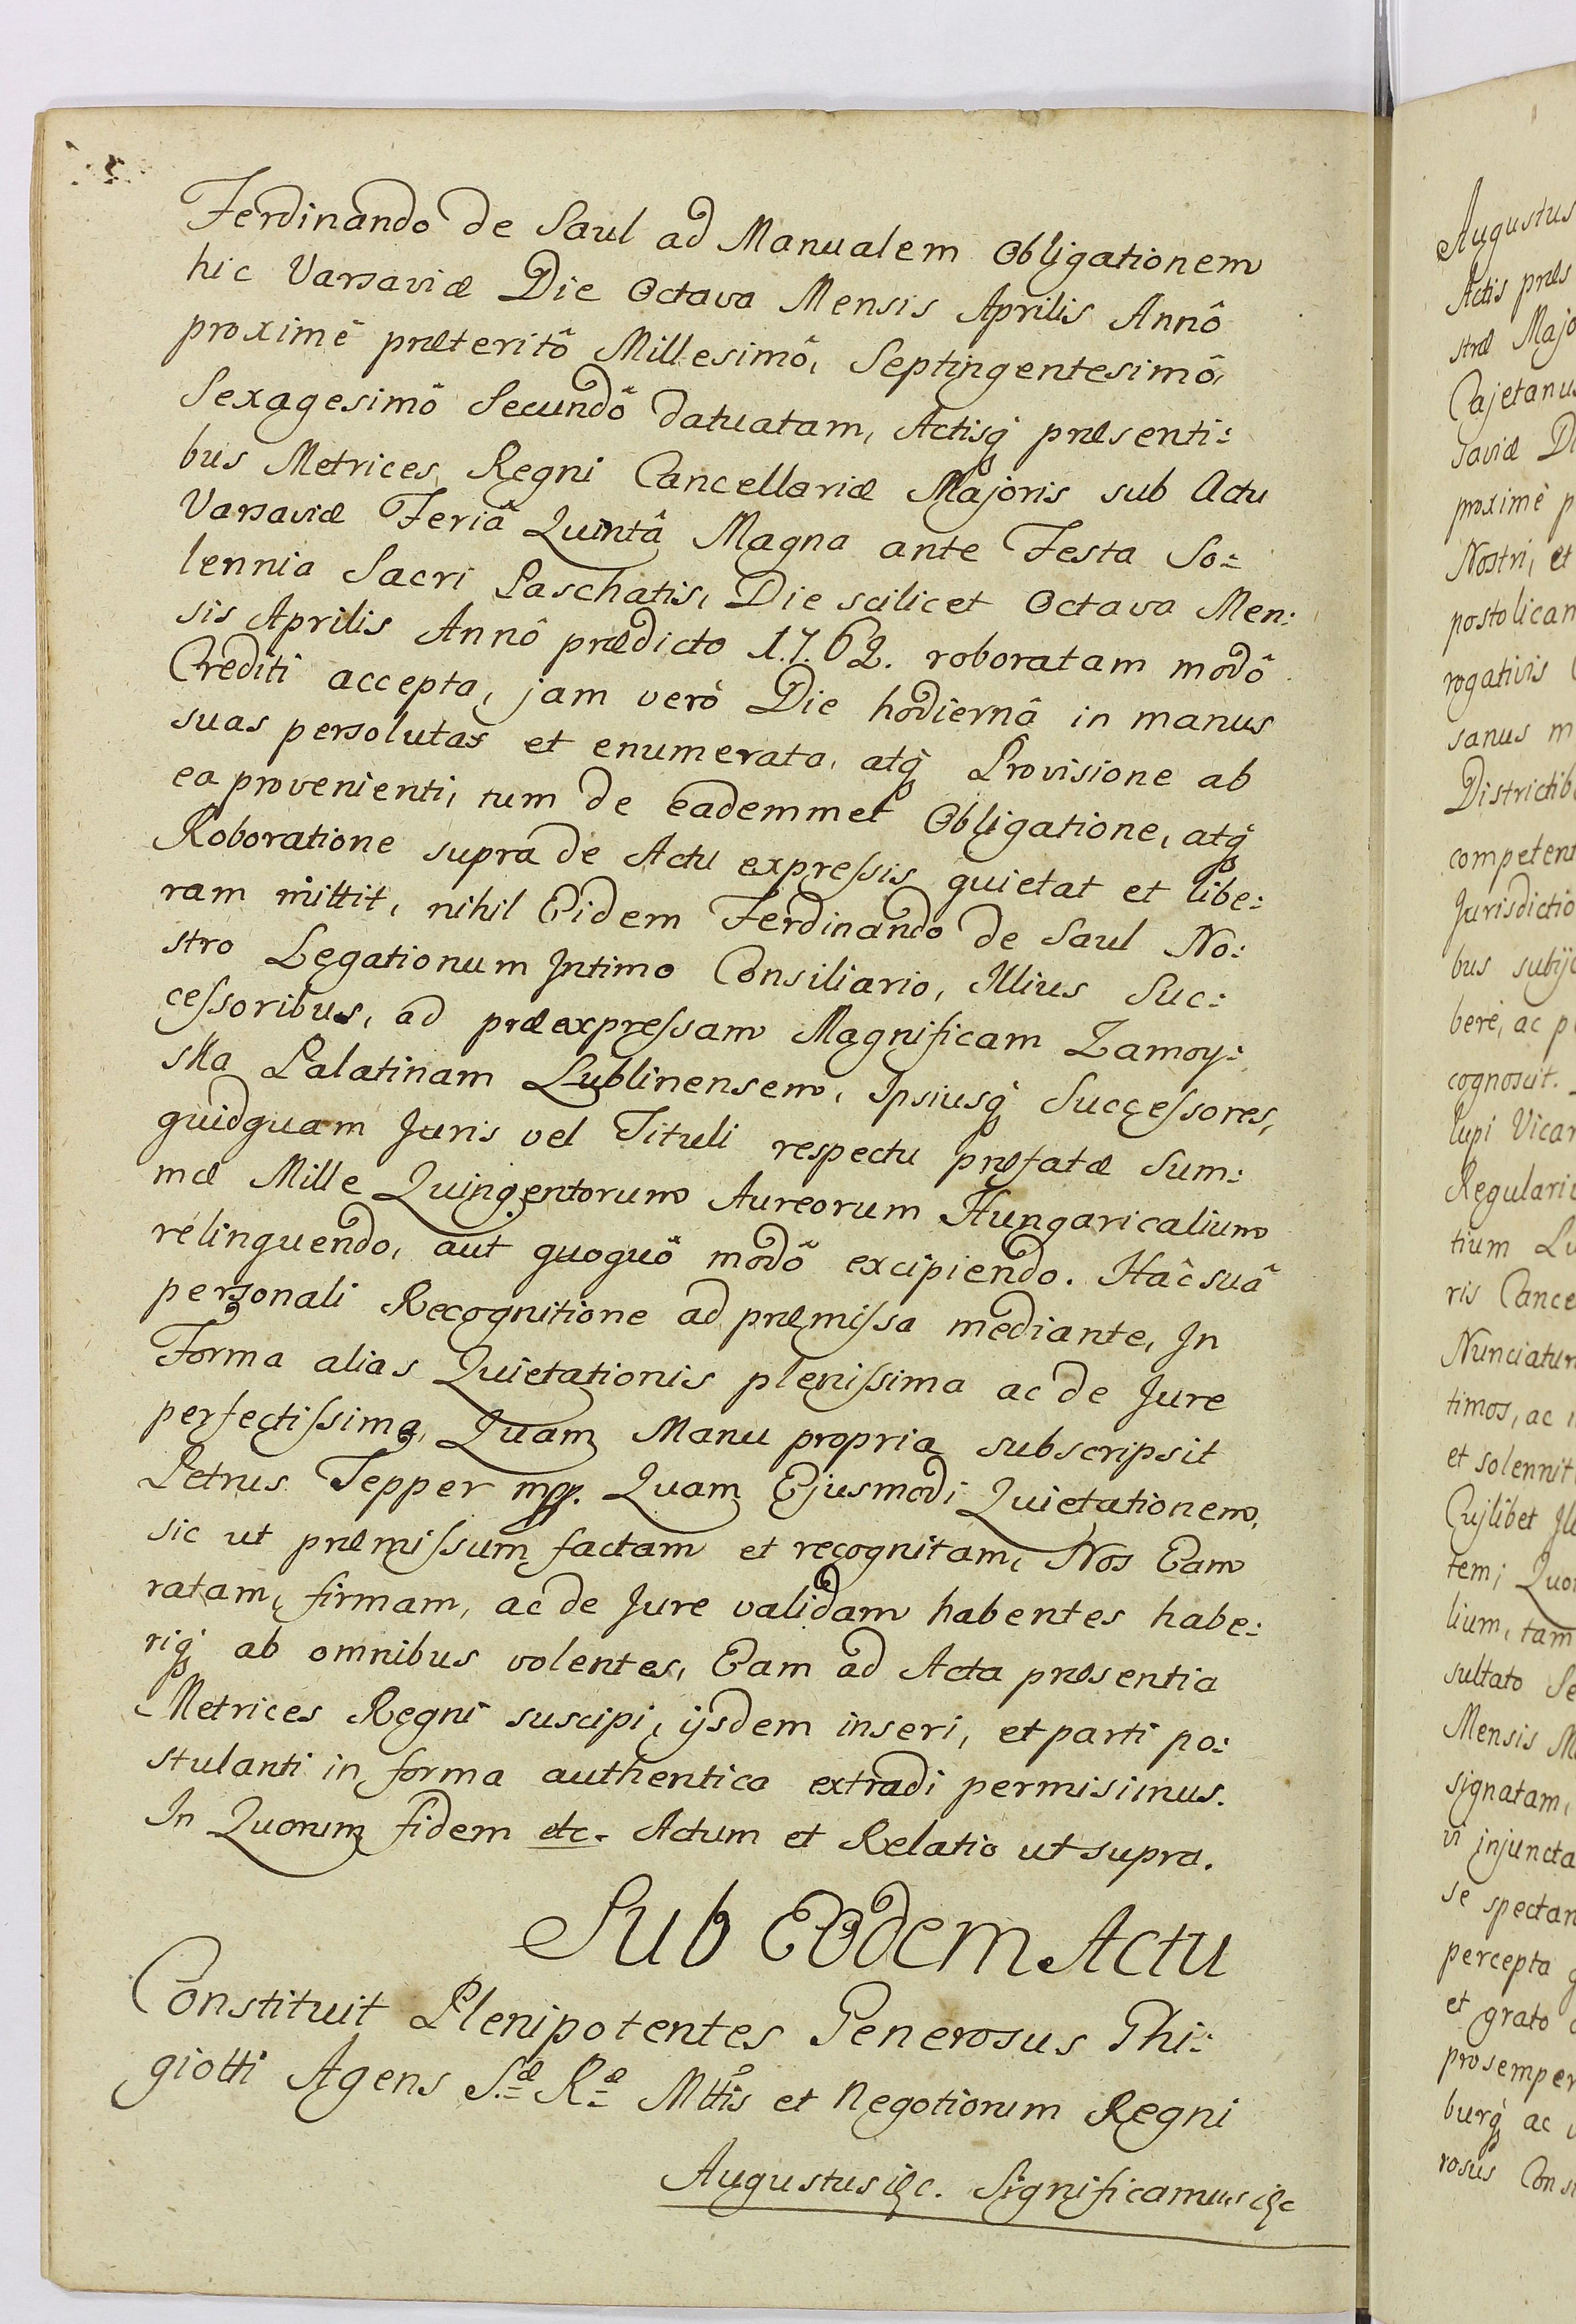 Ferdinando de Saul ad Manualem Obligationem
hic Varsaviæ Die Octava Mensis Aprilis Annô
proximê præteritô Millesimô, Septingentesimô,
Sexagesimô Secundô datuatam, Actisq́ præsenti:
bus Metrices Regni Cancellariæ Majoris sub Actu
Varsaviæ Feriâ Quintâ Magna ante Festa So:
lennia Sacri Paschatis, Die scilicet Octava Men:
sis Aprilis Annô prædicto 1.7.62. roboratam modô
Crediti accepta, jam verò Die hodiernâ in manus
suas persolutas et enumerata, atq́ Provisione ab
ea provenienti, tum de eademmet Obligatione, atq́
Roboratione supra de Actu expreſsis quietat et libe:
ram mittit, nihil Eidem Ferdinando de Saul No:
stro Legationum Intimo Consiliario, Illius Suc:
ceſsoribus, ad præexpreſsam Magnificam Zamoy:
ska Palatinam Lublinensem, Ipsiusq́ Succeſsores,
quidquam Juris vel Tituli respectu præfatæ Sum:
mæ Mille Quingentorum Aureorum Hungaricalium
relinquendo, aut quoquô modô excipiendo. Hâc suâ
personali Recognitione ad præmiſsa mediante, In
Forma alias Quietationis pleniſsima ac de Jure
perfectiſsima, Quam Manu propria subscripsit
Petrus Tepper mpp. Quam Ejusmodi Quietationem,
sic ut præmiſsum factam et recognitam, Nos Eam
ratam, firmam, ac de Jure validam habentes habe:
riq́ ab omnibus volentes, Eam ad Acta præsentia
Metrices Regni suscipi, ijsdem inseri, et parti po:
stulanti in forma authentica extradi permisimus.
In Quorum fidem etc. Actum et Relatio ut supra.
Sub Eodem Actu
Constituit Plenipotentes Generosus Ghi:
giotti Agens S.æ R.æ Mttis et Negotiorum Regni
Augustus etc. Significamus etc
Augustus
Actis præs
stræ Majo
Cajetanus
saviæ Di
proximê p
Nostri, et
postolican
rogativis
sanus m
Districtib
competent
Jurisdictio
bus subijc
berè, ac p
cognoscit.
lupi Vicar
Regulari
tium Lu
ris Cance
Nunciatur
timos, ac
et solennit
Cujlibet Il
tem; Quor
lium, tam
sultato Se
Mensis M
signatam,
vi injuncta
se spectan
percepta
et grato
pro semper
burg ac
rosus Cons